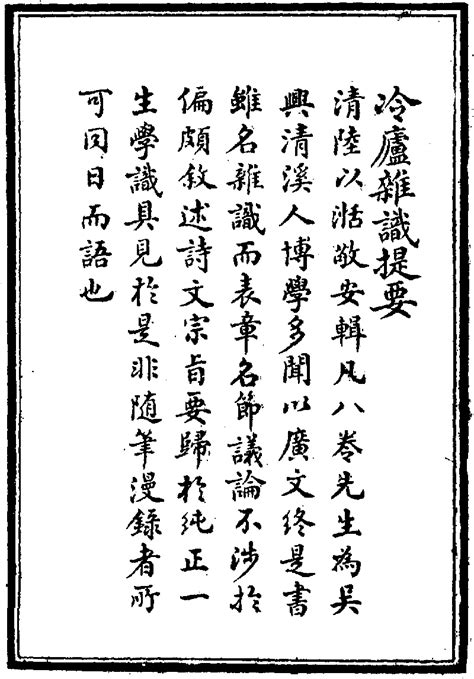 冷廬雜識提要
清陸以湉敬安輯凡八卷先生為吳
興清溪人博學多聞以廣文終是書
雖名雜識而表章名節議論不涉於
偏頗敘述詩文宗旨要歸於純正一
生學識具見於是非隨筆漫錄者所
可同日而語也